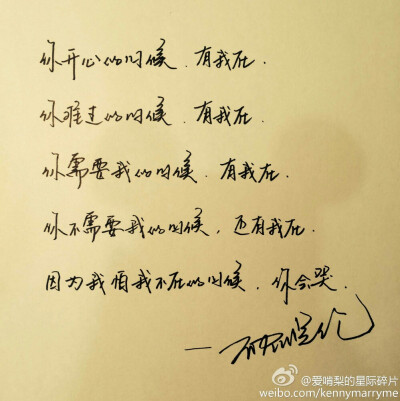 你开心的时候.有我在.
你难过的时候.有我在.
你需要我的时候.有我在.
你不需要我的时候,还有我在.
因为我怕我不在的时候.你会哭.
@爱啃梨的星际碎片
weibo.com/kennymarryme